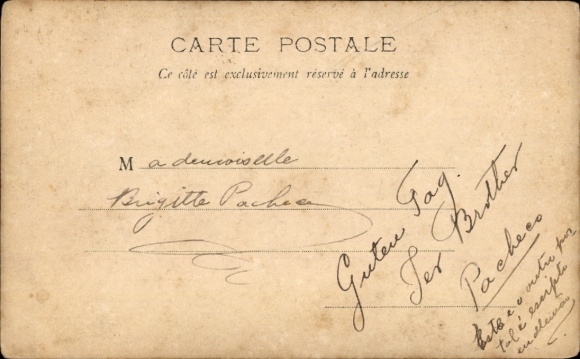 CARTE POSTALE
Ce côté est exclusivement réservé à l'adresse
Mademoiselle
Brigitte Pacheco
Guten Tag.
Ter Brother
Pacheco
Este e o outro pos
tal é escripto
en aleman